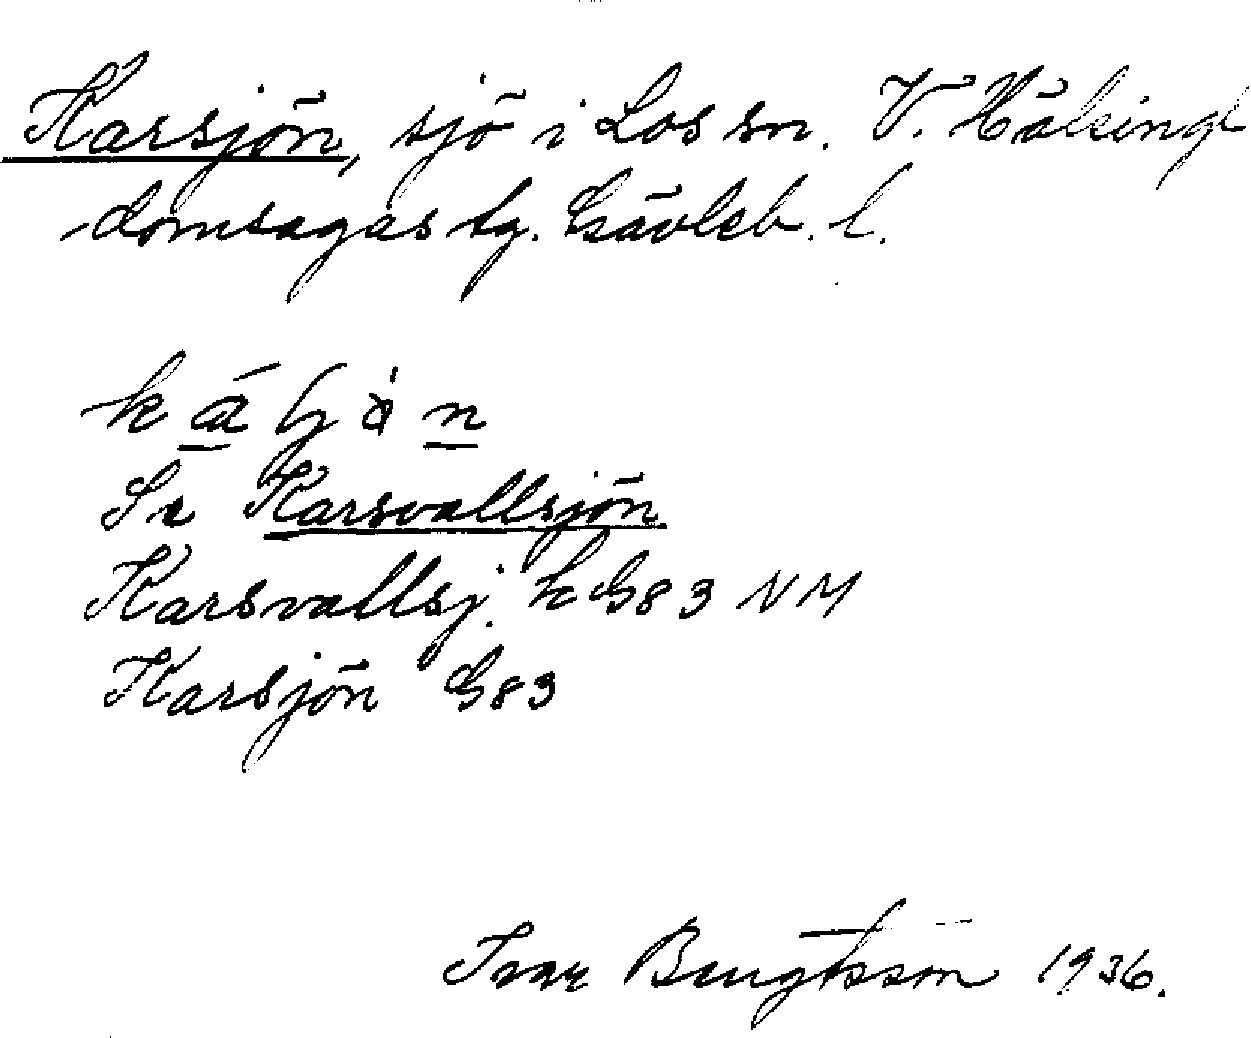 Karsjön, sjö i Los sn. V. Hälsingl
domsagas tg. Gävleb. l.
Se Karsvallsjön
Karsvallsj. k G83 NM
Karsjön G83
Ivar Bengtsson 1936.